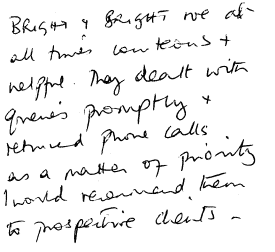 BRIGHT & BRIGHT were at
all times courteous +
helpful. They dealt with
queries promptly +
returned phone calls
as a matter of priority
I would recommend them
to prospective clients -